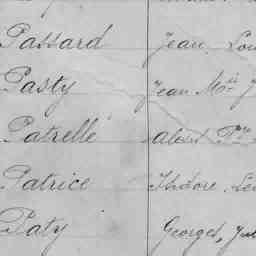 Passard Jean, Lou
Pasty Jean Mie J
Patrelle
Patrice Thdore, Léo
Paty Georges, Jul